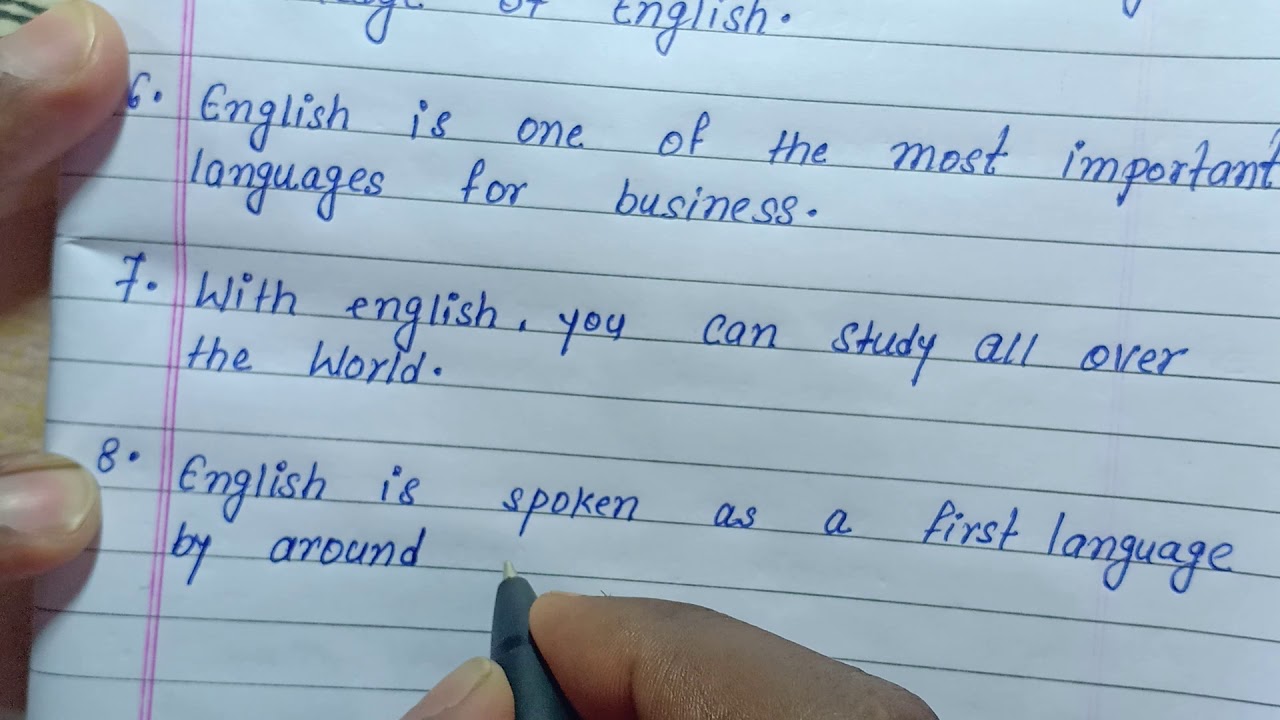 of English.
6. English is one of the most important
languages for business.
7. With english, you can study all over
the World.
8. English is spoken as a first language
by around